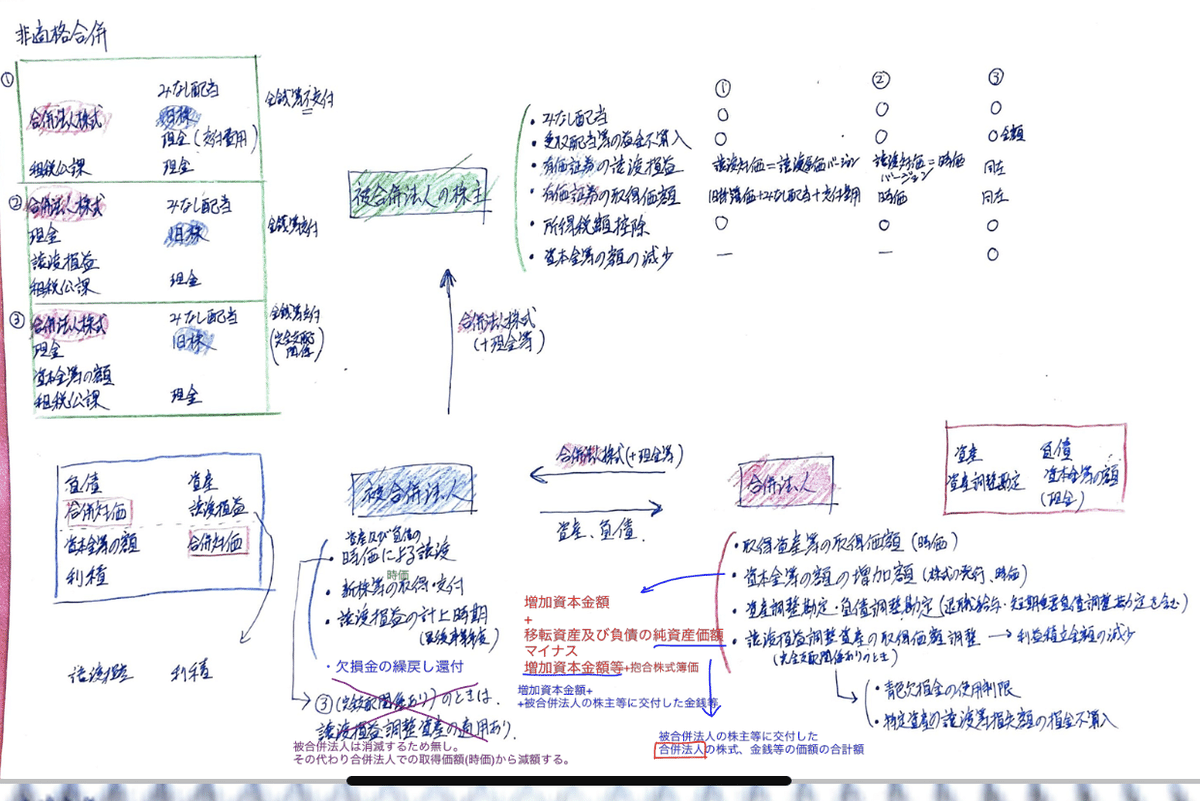 非適格合併
①
みなし配当
合併法人株式 旧株
現金(交付費用)
租税公課 現金
金銭等不交付
②
合併法人株式 みなし配当
現金 旧株
譲渡損益
租税公課 現金
金銭等交付
③
合併法人株式 みなし配当
現金 旧株
資本金等の額
租税公課 現金
金銭等交付
(完全支配関係)
被合併法人の株主
① ② ③
・みなし配当 ○ ○ ○
・受取配当等の益金不算入 ○ ○ ○全額
・有価証券の譲渡損益 譲渡対価=譲渡原価バージョン 譲渡対価=時価バージョン 同左
・有価証券の取得価額 旧株簿価+みなし配当+交付費用 時価 同左
・所得税額控除 ○ ○ ○
・資本金等の額の減少 — — ○
合併法人株式
(+現金等)
負債 資産
合併対価 譲渡損益
資本金等の額 合併対価
利積
譲渡損益 利積
被合併法人
資産及び負債の
・時価による譲渡
時価
・新株等の取得・交付
・譲渡損益の計上時期
(最後事業年度)
・欠損金の繰戻し還付
③(完全支配関係あり)のときは、
譲渡損益調整資産の適用あり。
被合併法人は消滅するため無し。
その代わり合併法人での取得価額(時価)から減額する。
合併法人株式(+現金等)
資産、負債
合併法人
資産 負債
資産調整勘定 資本金等の額
(現金)
・取得資産等の取得価額(時価)
・資本金等の額の増加額(株式の発行、時価)
・資産調整勘定・負債調整勘定(退職給与・短期重要負債調整勘定を含む)
・譲渡損益調整資産の取得価額調整 → 利益積立金額の減少
(完全支配関係ありのとき)
・青色欠損金の使用制限
・特定資産の譲渡等損失額の損金不算入
増加資本金額
+
移転資産及び負債の純資産価額
マイナス
増加資本金額等+抱合株式簿価
増加資本金額+
+被合併法人の株主等に交付した金銭等
被合併法人の株主等に交付した
合併法人の株式、金銭等の価額の合計額